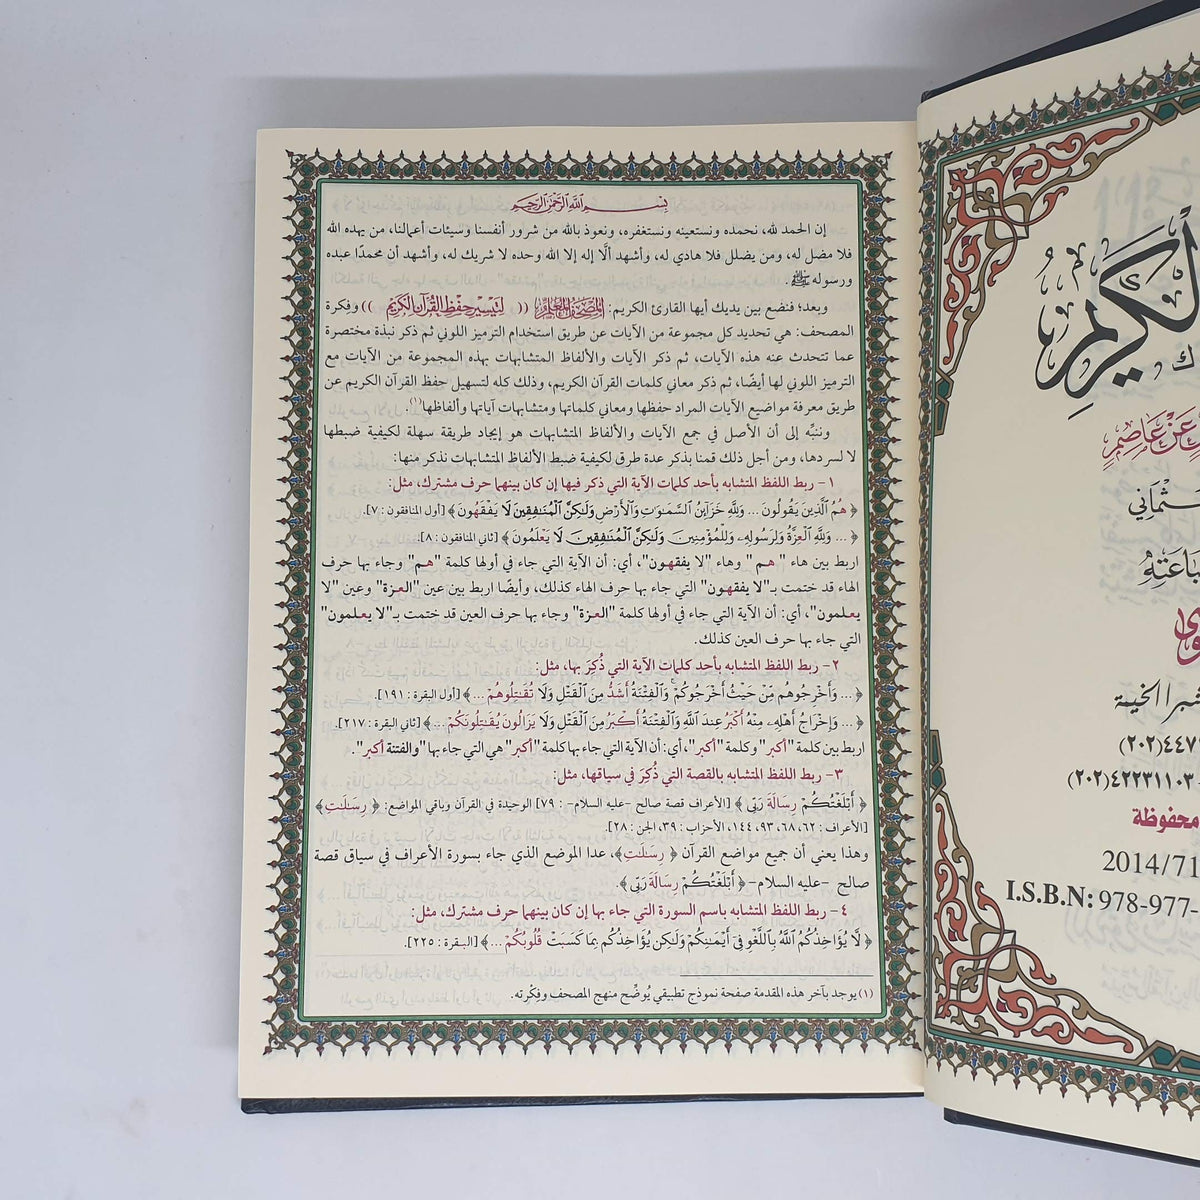 بِسْمِ اللَّهِ الرَّحْمَنِ الرَّحِيمِ
إن الحمد لله، نحمده ونستعينه ونستغفره، ونعوذ بالله من شرور أنفسنا وسيئات أعمالنا، من يهده الله
فلا مضل له، ومن يضلل فلا هادي له، وأشهد ألَّا إله إلا الله وحده لا شريك له، وأشهد أن محمدًا عبده
ورسوله ﷺ.
وبعد؛ فنضع بين يديك أيها القارئ الكريم: (( لتيسير حفظ القرآن الكريم )) وفكرة
المصحف: هي تحديد كل مجموعة من الآيات عن طريق استخدام الترميز اللوني ثم ذكر نبذة مختصرة
عما تتحدث عنه هذه الآيات، ثم ذكر الآيات والألفاظ المتشابهات بهذه المجموعة من الآيات مع
الترميز اللوني لها أيضًا، ثم ذكر معاني كلمات القرآن الكريم، وذلك كله لتسهيل حفظ القرآن الكريم عن
طريق معرفة مواضيع الآيات المراد حفظها ومعاني كلماتها ومتشابهات آياتها وألفاظها(١).
وننبِّه إلى أن الأصل في جمع الآيات والألفاظ المتشابهات هو إيجاد طريقة سهلة لكيفية ضبطها
لا لسردها، ومن أجل ذلك قمنا بذكر عدة طرق لكيفية ضبط الألفاظ المتشابهات نذكر منها:
١- ربط اللفظ المتشابه بأحد كلمات الآية التي ذكر فيها إن كان بينهما حرف مشترك، مثل:
﴿ هُمُ ٱلَّذِينَ يَقُولُونَ ... وَلِلَّهِ خَزَآئِنُ ٱلسَّمَٰوَٰتِ وَٱلْأَرْضِ وَلَٰكِنَّ ٱلْمُنَٰفِقِينَ لَا يَفْقَهُونَ﴾ [أول المنافقون : ٧].
﴿ ... وَلِلَّهِ ٱلْعِزَّةُ وَلِرَسُولِهِۦ وَلِلْمُؤْمِنِينَ وَلَٰكِنَّ ٱلْمُنَٰفِقِينَ لَا يَعْلَمُونَ﴾ [ثاني المنافقون : ٨].
اربط بين هاء "هم" وهاء "لا يفقهون"، أي: أن الآية التي جاء في أولها كلمة "هم" وجاء بها حرف
الهاء قد ختمت بـ"لا يفقهون" التي جاء بها حرف الهاء كذلك، وأيضًا اربط بين عين "العزة" وعين "لا
يعلمون"، أي: أن الآية التي جاء في أولها كلمة "العزة" وجاء بها حرف العين قد ختمت بـ"لا يعلمون"
التي جاء بها حرف العين كذلك.
٢- ربط اللفظ المتشابه بأحد كلمات الآية التي ذُكِرَ بها، مثل:
﴿... وَأَخْرِجُوهُم مِّنْ حَيْثُ أَخْرَجُوكُمْ ۚ وَٱلْفِتْنَةُ أَشَدُّ مِنَ ٱلْقَتْلِ وَلَا تُقَٰتِلُوهُمْ ...﴾ [أول البقرة : ١٩١].
﴿... وَإِخْرَاجُ أَهْلِهِۦ مِنْهُ أَكْبَرُ عِندَ ٱللَّهِ وَٱلْفِتْنَةُ أَكْبَرُ مِنَ ٱلْقَتْلِ وَلَا يَزَالُونَ يُقَٰتِلُونَكُمْ ...﴾ [ثاني البقرة : ٢١٧].
اربط بين كلمة "أكبر" وكلمة "أكبر"، أي: أن الآية التي جاء بها كلمة "أكبر" هي التي جاء بها "والفتنة أكبر".
٣- ربط اللفظ المتشابه بالقصة التي ذُكِرَ في سياقها، مثل:
﴿ أَبْلَغْتُكُمْ رِسَالَةَ رَبِّي ﴾ [الأعراف قصة صالح -عليه السلام- : ٧٩] الوحيدة في القرآن وباقي المواضع: ﴿ رِسَٰلَٰتِ﴾
[الأعراف : ٦٢، ٦٨، ٩٣، ١٤٤، الأحزاب : ٣٩، الجن : ٢٨].
وهذا يعني أن جميع مواضع القرآن ﴿ رِسَٰلَٰتِ﴾، عدا الموضع الذي جاء بسورة الأعراف في سياق قصة
صالح -عليه السلام- ﴿ أَبْلَغْتُكُمْ رِسَالَةَ رَبِّي ﴾.
٤- ربط اللفظ المتشابه باسم السورة التي جاء بها إن كان بينهما حرف مشترك، مثل:
﴿ لَّا يُؤَاخِذُكُمُ ٱللَّهُ بِٱللَّغْوِ فِيٓ أَيْمَٰنِكُمْ وَلَٰكِن يُؤَاخِذُكُم بِمَا كَسَبَتْ قُلُوبُكُمْ ...﴾ [البقرة : ٢٢٥].
(١) يوجد بآخر هذه المقدمة صفحة نموذج تطبيقي يُوضِّح منهج المصحف وفِكْرته.
الكريم
عن عاصم
محفوظة
(٢٠٢)٤٢٢٣١١٠٣
2014/71
I.S.B.N: 978-977-